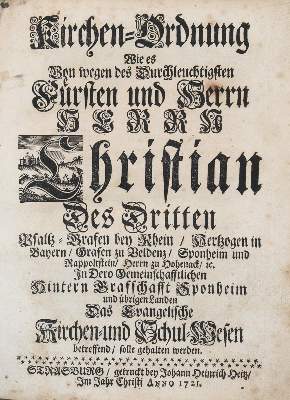 Kirchen-Ordnung
Wie es
Von wegen des Durchleuchtigsten
Fürsten und Herrn
HERRN
Christian
Des Dritten
Pfaltz-Grafen bey Rhein / Hertzogen in
Bayern / Grafen zu Veldenz / Sponheim und
Rappoltstein / Herrn zu Hohenack / ꝛc.
In Dero Gemeinschafftlichen
Hintern Graffschafft Sponheim
und übrigen Landen
Das Evangelische
Kirchen- und Schul-Wesen
betreffend / solle gehalten werden.
STRASBURG / getruckt bey Johann Heinrich Heitz /
Im Jahr Christi ANNO 1721.